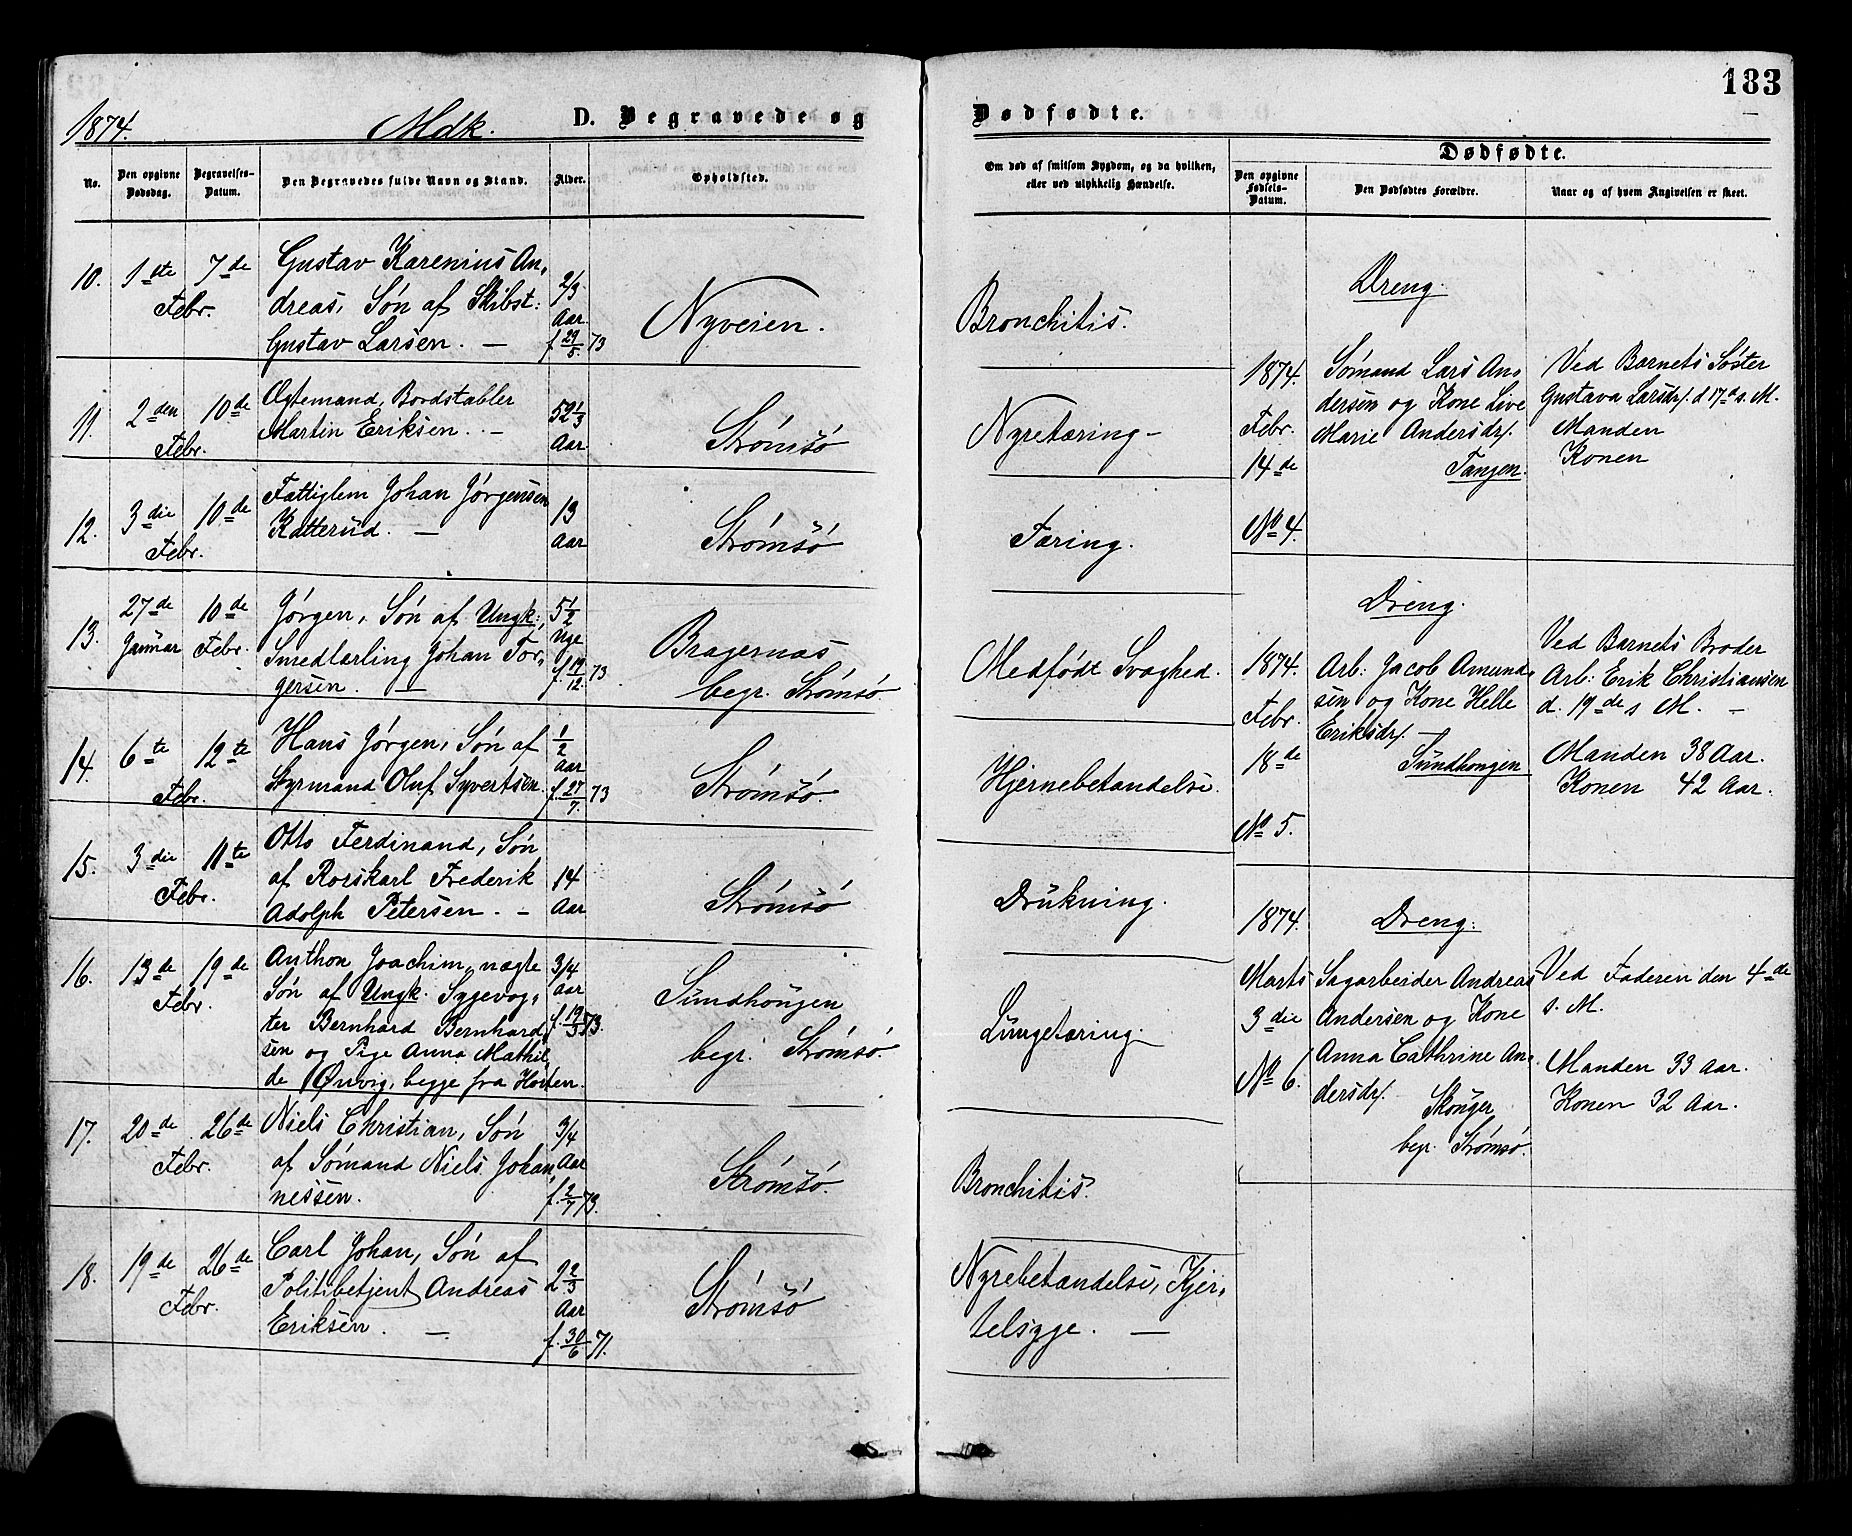 183
1874. Mdk. D. Begravede og Dødfødte.
No. Den opgivne Dødsdag. Begravelses-Datum. Den Begravedes fulde Navn og Stand. Alder. Opholdsted.
Om død af smitsom Sygdom, og da hvilken, eller ved ulykkelig Hændelse.
Dødfødte.
Den opgivne Fødsels-Datum. Den Dødfødtes Forældre. Naar og af hvem Angivelsen er skeet.
10. 1ste 7de Febr.
Gustav Karenius An-
dreas, Søn af Skibst:
Gustav Larsen. —
2/3 Aar f. 29/5 73
Nyveien.
Bronchitis.
11. 2den 10de Febr.
Ægtemand, Bordstabler
Martin Eriksen. —
52 1/3 Aar
Strømsø
Nyretæring —
12. 3die 10de Febr.
Fattiglem Johan Jørgensen
Katterud. —
13 Aar
Strømsø
Tæring.
13. 27de Januar 10de Febr.
Jørgen, Søn af Ungk:,
Smedlærling Johan Tor-
gersen. —
5 1/2 Uge f. 19/12 73
Bragernæs
begr. Strømsø.
Medfødt Svaghed.
14. 6te 12te Febr.
Hans Jørgen, Søn af
Styrmand Oluf Syvertsen.
1/2 Aar f. 27/7 73
Strømsø.
Hjernebetændelse.
15. 3die 11te Febr.
Otto Ferdinand, Søn
af Rorskarl Frederik
Adolph Petersen. —
14 Aar
Strømsø
Drukning.
16. 13de 19de Febr.
Anthon Joachim, uægte
Søn af Ungk. Sygevog-
ter Bernhard Bernhard-
sen og Pige Anna Mathil-
de Ønvig, begge fra Horten.
3/4 Aar f. 19/5 73.
Sundhougen
begr. Strømsø.
Lungetæring —
17. 20de 26de Febr.
Niels Christian, Søn
af Sømand Niels Johan-
nessen.
3/4 Aar f. 2/7 73.
Strømsø.
Bronchitis.
18. 19de 26de Febr.
Carl Johan, Søn af
Politibetjent Andreas
Eriksen. —
2 2/3 Aar f. 30/6 71.
Strømsø
Nyrebetændelse, Kjer-
telsyge. —
Dreng.
1874. Febr. 14de No 4.
Sømand Lars An-
dersen og Kone Live
Marie Andersdr.
Tangen.
Ved Barnets Søster
Gustava Larsdr. d. 17de s. M.
Manden
Konen
Dreng.
1874. Febr. 18de No 5.
Arb: Jacob Amund-
sen og Kone Helle
Eriksdr. —
Sundhougen
Ved Barnets Broder
Arb: Erik Christiansen
d. 19de s M. —
Manden 38 Aar.
Konen 42 Aar.
Dreng.
1874. Marts 3die No 6.
Sagarbeider Andreas
Andersen og Kone
Anna Cathrine An-
dersdr.
Skoger
begr. Strømsø.
Ved Faderen den 4de
s. M.
Manden 33 Aar.
Konen 32 Aar.